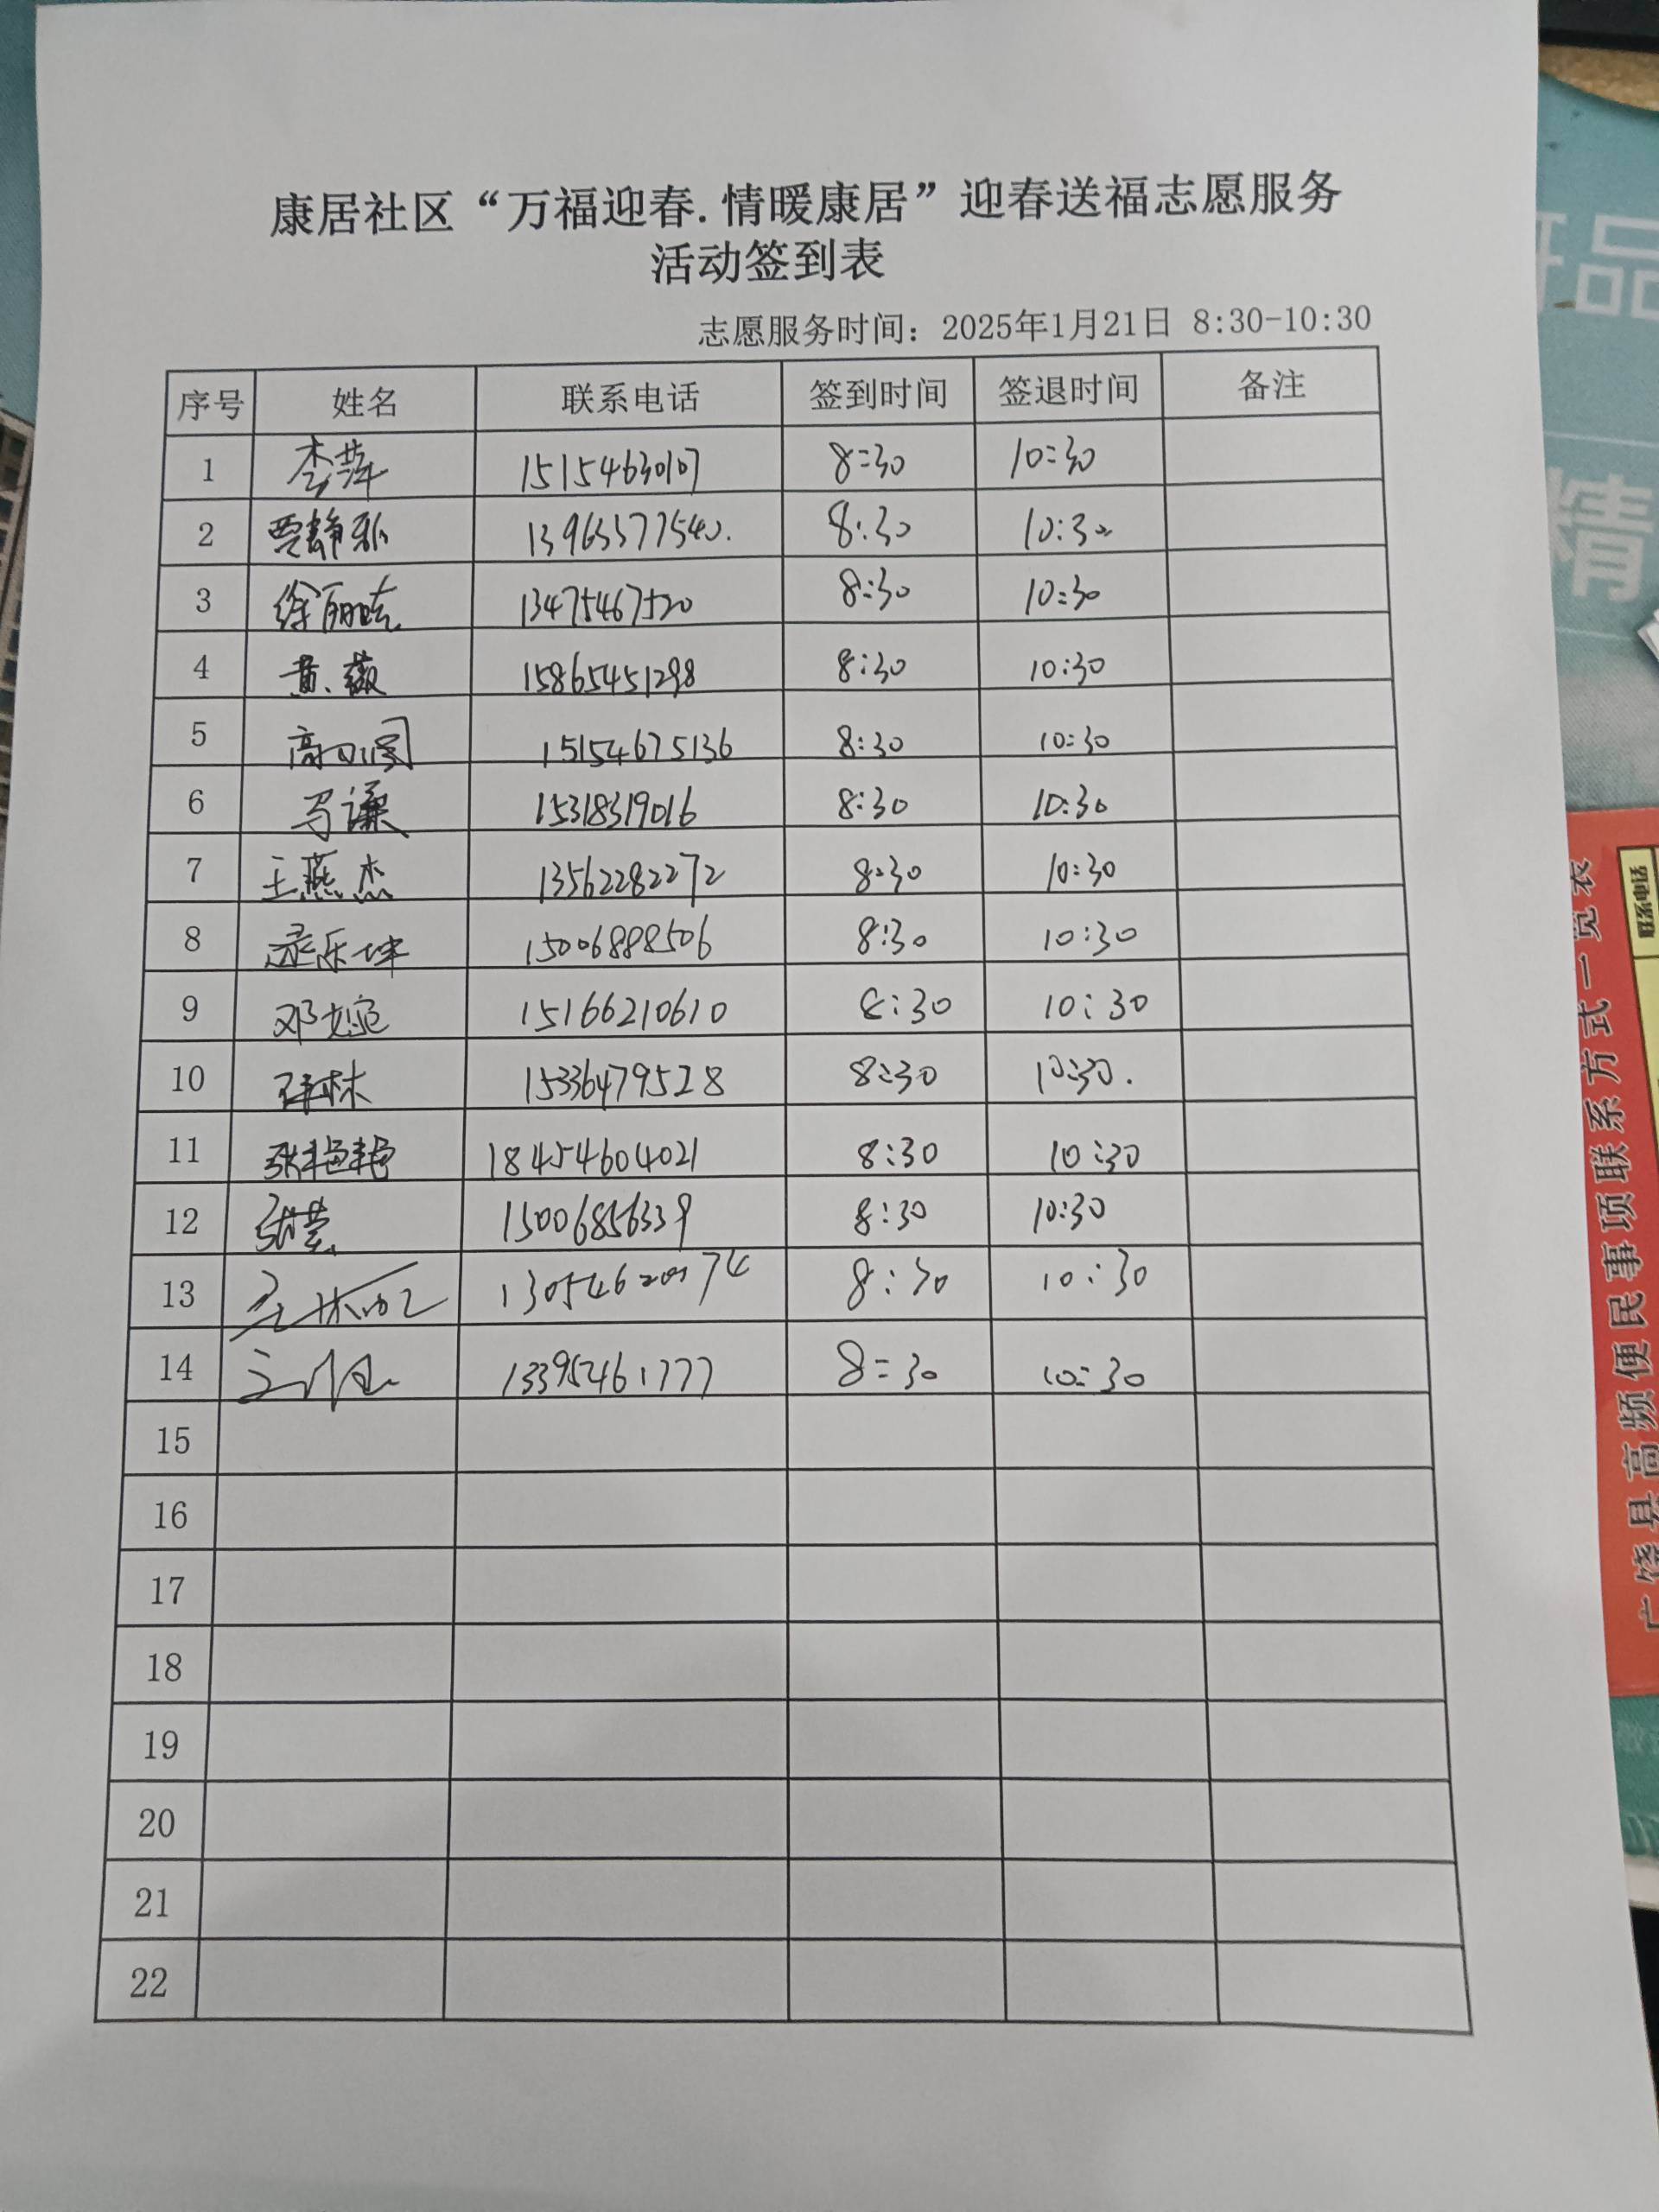 康居社区“万福迎春.情暖康居”迎春送福志愿服务
活动签到表
志愿服务时间：2025年1月21日 8:30-10:30
序号 姓名 联系电话 签到时间 签退时间 备注
1 李萍 15154630107 8:30 10:30
2 贾静 13963377540. 8:30 10:30
3 徐丽 13475467520 8:30 10:30
4 黄薇 15865451298 8:30 10:30
5 高 15154675136 8:30 10:30
6 马谦 15318319016 8:30 10:30
7 王燕杰 13562282272 8:30 10:30
8 15006888506 8:30 10:30
9 邓婉 15166210610 8:30 10:30
10 15336479528 8:30 10:30.
11 张艳艳 18454604021 8:30 10:30
12 张芸 15006856339 8:30 10:30
13 8:30 10:30
14 13395461777 8:30 10:30
15
16
17
18
19
20
21
22
品
精
联系电话
广饶县高频便民事项联系方式一览表